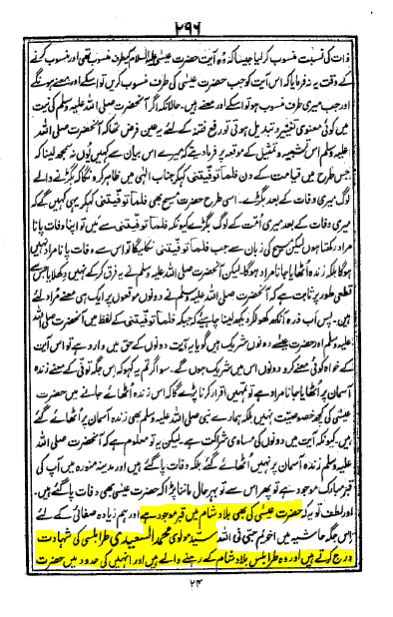 ۲۹۶
ذات کی نسبت منسوب کر لیا جیسا کہ وہ آیت حضرت عیسیٰ علیہ السلام کیطرف منسوب تھی اور منسوب کرنے
کے وقت یہ نہ فرمایا کہ اس آیت کو جب حضرت عیسیٰ کی طرف منسوب کریں تو اسکے اور معنے ہونگے
اور جب میری طرف منسوب ہو تو اسکے اور معنے ہیں۔ حالانکہ اگر آنحضرت صلی اللہ علیہ وسلم کی نیت
میں کوئی معنوی تغییر و تبدیل ہوتی تو رفع فتنہ کے لئے یہ عین فرض تھا کہ آنحضرت صلی اللہ
علیہ وسلم اس تشبیہ و تمثیل کے موقعہ پر فرما دیتے کہ میرے اس بیان سے کہیں یوں نہ سمجھ لینا کہ
جس طرح میں قیامت کے دن فلما توفیتنی کہکر جناب الٰہی میں ظاہر کرونگا کہ بگڑنے والے
لوگ میری وفات کے بعد بگڑے۔ اسی طرح حضرت مسیح بھی فلما توفیتنی کہکر یہی کہیں گے کہ
میری وفات کے بعد میری اُمت کے لوگ بگڑے کیونکہ فلما توفیتنی سے میں تو اپنا وفات پانا
مراد رکھتا ہوں لیکن مسیح کی زبان سے جب فلما توفیتنی نکلے گا تو اس سے وفات پانا مراد نہیں
ہوگا بلکہ زندہ اُٹھایا جانا مراد ہوگا۔ لیکن آنحضرت صلی اللہ علیہ وسلم نے یہ فرق کرکے نہیں دکھلایا جس سے
قطعی طور پر ثابت ہے کہ آنحضرت صلی اللہ علیہ وسلم نے دونوں موقعوں پر ایک ہی معنے مُراد لئے
ہیں۔ پس اب ذرہ آنکھ کھولکر دیکھ لینا چاہیئے کہ جبکہ فلما توفیتنی کے لفظ میں آنحضرت صلی اللہ
علیہ وسلم اور حضرت عیسیٰ دونوں شریک ہیں گویا یہ آیت دونوں کے حق میں وارد ہے تو اس آیت
کے خواہ کوئی معنے کرو دونوں اس میں شریک ہوں گے۔ سو اگر تم یہ کہو کہ اس جگہ توفی کے معنے زندہ
آسمان پر اُٹھایا جانا مراد ہے تو تمہیں اقرار کرنا پڑے گا کہ اس زندہ اُٹھائے جانے میں حضرت
عیسیٰ کی کچھ خصوصیّت نہیں بلکہ ہمارے نبی صلی اللہ علیہ وسلم بھی زندہ آسمان پر اُٹھائے گئے
ہیں۔ کیونکہ آیت میں دونوں کی مساوی شراکت ہے۔ لیکن یہ تو معلوم ہے کہ آنحضرت صلی اللہ
علیہ وسلم زندہ آسمان پر نہیں اُٹھائے گئے بلکہ وفات پا گئے ہیں اور مدینہ منورہ میں آپ کی
قبر مبارک موجود ہے تو پھر اس سے تو بہرحال ماننا پڑا کہ حضرت عیسیٰ بھی وفات پا گئے ہیں۔
اور لطف تو یہ کہ حضرت عیسیٰ کی بھی بلاد شام میں قبر موجود ہے اور ہم زیادہ صفائی کے لئے
اس جگہ حاشیہ میں اخویم حبّی فی اللہ سیّد مولوی محمد السعیدی طرابلسی کی شہادت
درج کرتے ہیں اور وہ طرابلس بلاد شام کے رہنے والے ہیں اور انہیں کی حدود میں حضرت
۲۴